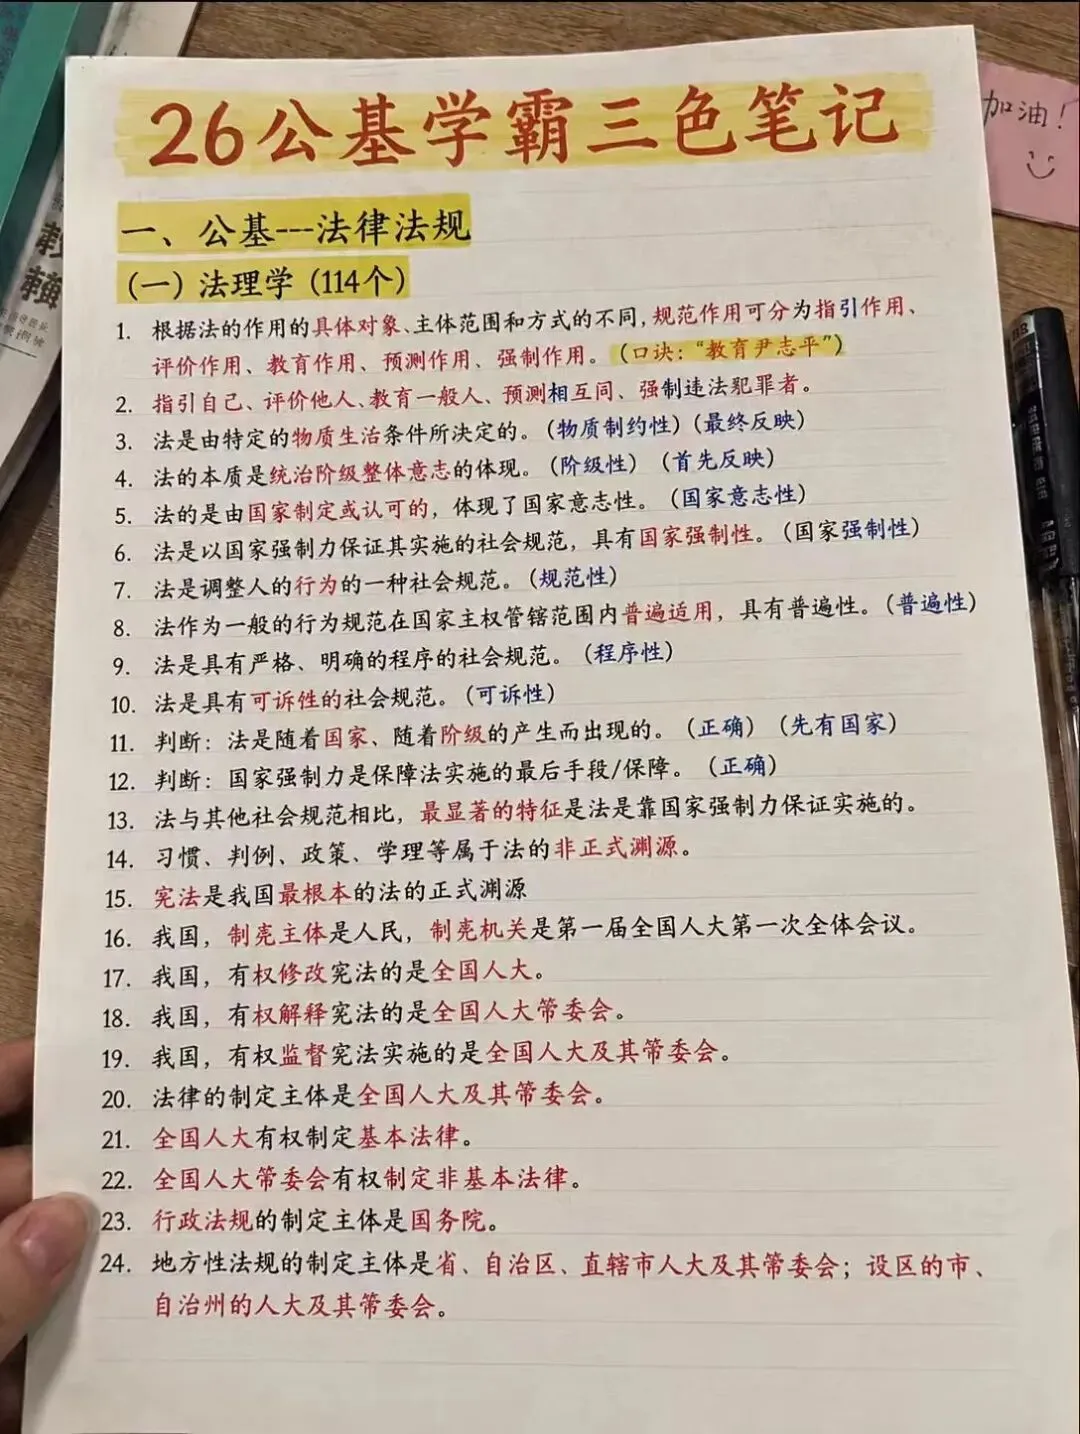 26公基学霸三色笔记
加油！
一、公基---法律法规
（一）法理学（114个）
1. 根据法的作用的具体对象、主体范围和方式的不同，规范作用可分为指引作用、
评价作用、教育作用、预测作用、强制作用。（口诀：“教育尹志平”）
2. 指引自己、评价他人、教育一般人、预测相互间、强制违法犯罪者。
3. 法是由特定的物质生活条件所决定的。（物质制约性）（最终反映）
4. 法的本质是统治阶级整体意志的体现。（阶级性）（首先反映）
5. 法的是由国家制定或认可的，体现了国家意志性。（国家意志性）
6. 法是以国家强制力保证其实施的社会规范，具有国家强制性。（国家强制性）
7. 法是调整人的行为的一种社会规范。（规范性）
8. 法作为一般的行为规范在国家主权管辖范围内普遍适用，具有普遍性。（普遍性）
9. 法是具有严格、明确的程序的社会规范。（程序性）
10. 法是具有可诉性的社会规范。（可诉性）
11. 判断：法是随着国家、随着阶级的产生而出现的。（正确）（先有国家）
12. 判断：国家强制力是保障法实施的最后手段/保障。（正确）
13. 法与其他社会规范相比，最显著的特征是法是靠国家强制力保证实施的。
14. 习惯、判例、政策、学理等属于法的非正式渊源。
15. 宪法是我国最根本的法的正式渊源
16. 我国，制宪主体是人民，制宪机关是第一届全国人大第一次全体会议。
17. 我国，有权修改宪法的是全国人大。
18. 我国，有权解释宪法的是全国人大常委会。
19. 我国，有权监督宪法实施的是全国人大及其常委会。
20. 法律的制定主体是全国人大及其常委会。
21. 全国人大有权制定基本法律。
22. 全国人大常委会有权制定非基本法律。
23. 行政法规的制定主体是国务院。
24. 地方性法规的制定主体是省、自治区、直辖市人大及其常委会；设区的市、
自治州的人大及其常委会。